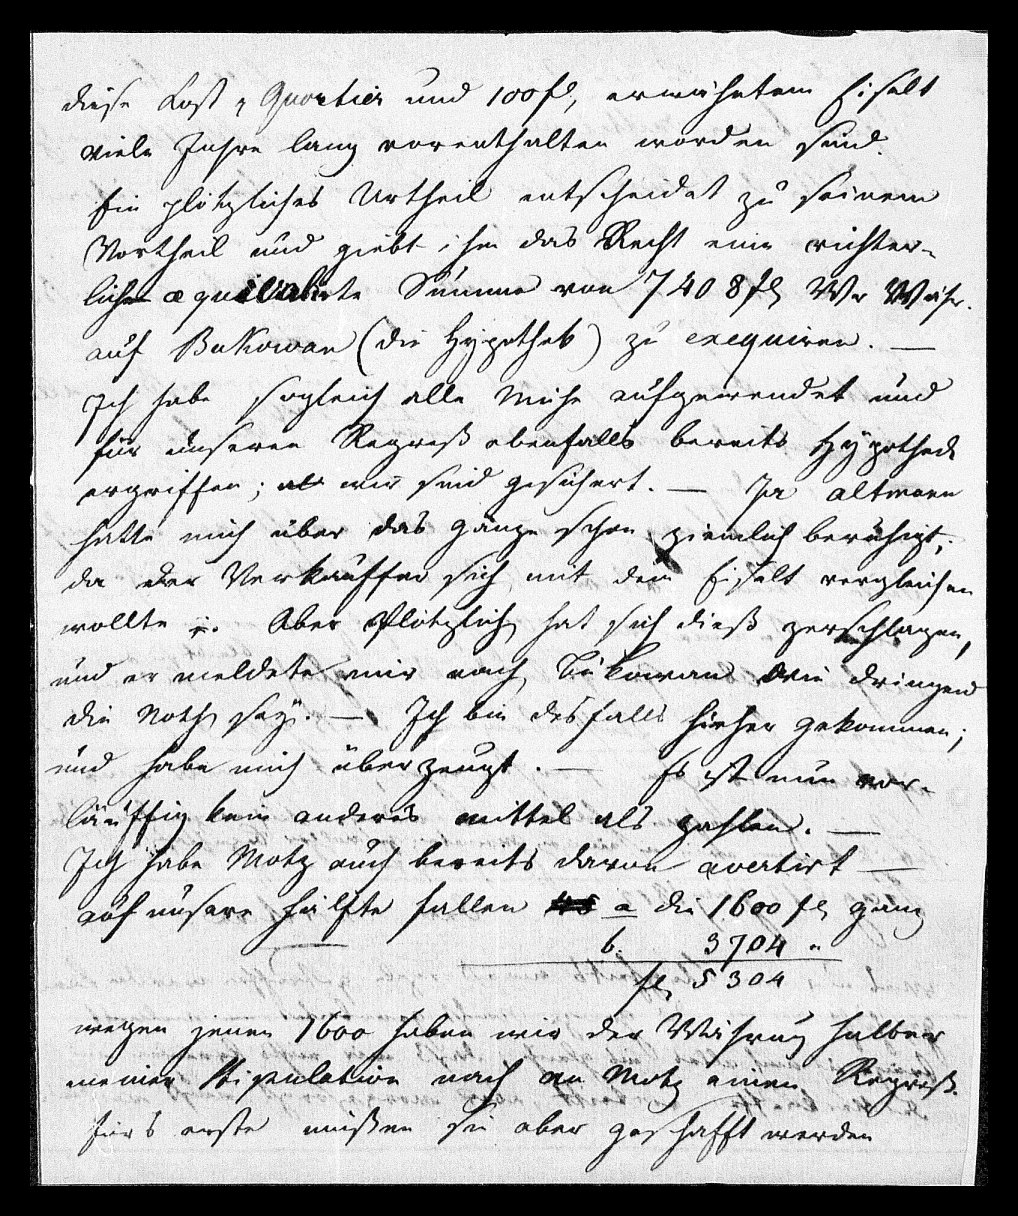 diese Kost, Quartier und 100 fl, erwähntem Eiselt
viele Jahre lang vorenthalten worden sind.
Ein plötzliches Urtheil entscheidet zu seinem
Vortheil und giebt ihm das Recht eine richter-
liche æquivalirte Summe von 7408 fl Wr Währ.
auf Bukowan (die Hypothek) zu exequiren. —
Ich habe sogleich alle Mühe aufgewendet und
für unseren Regreß ebenfalls bereits Hypothek
ergriffen; wir sind gesichert. — Altmann
hatte mich über das ganze schon ziemlich beruhigt,
da der Verkauffer sich mit dem Eiselt vergleichen
wollte. Aber Plötzlich hat sich dieß zerschlagen,
und er meldete mir nach Bukowan wie dringend
die Noth sey. — Ich bin desfalls hieher gekommen;
und habe mich überzeugt. — Es ist nun vor-
läuffig kein anderes mittel als zahlen. —
Ich habe Motz auch bereits davon avertirt —
auf unsere Hälfte fallen a die 1600 fl ganz
b. 3704 "
fl 5304
wegen jenen 1600 haben wir der Währung halber
meiner Stipulation nach an Motz einen Regreß.
fürs erste müßen sie aber geschafft werden